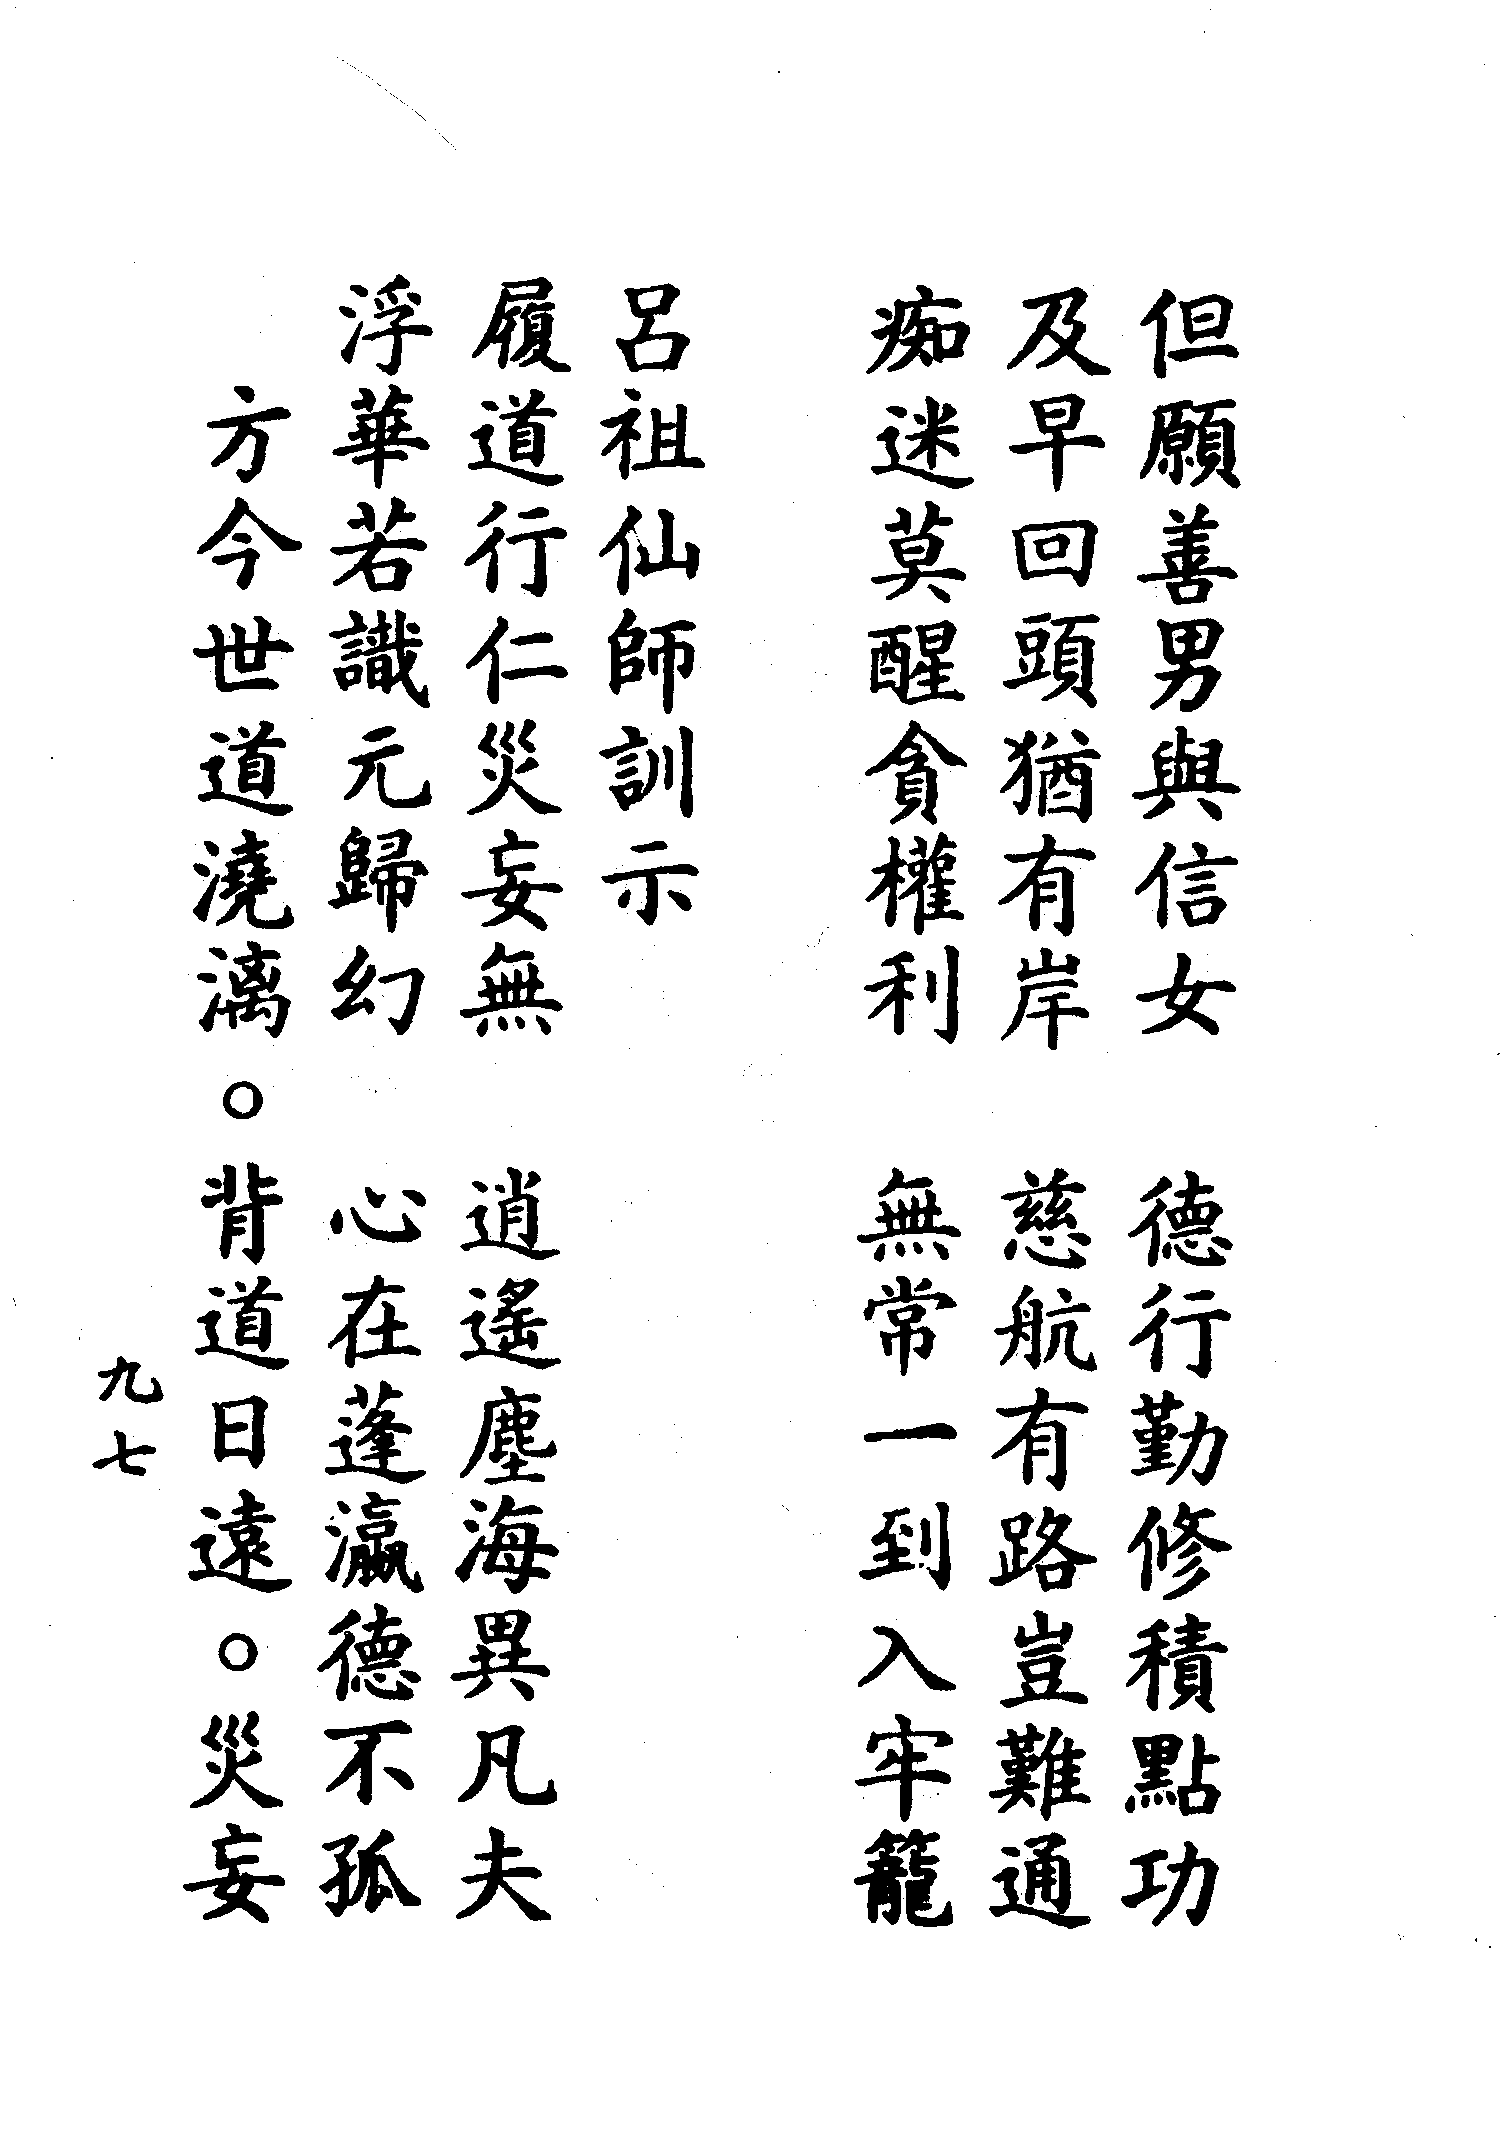 但願善男與信女　德行勤修積點功
及早回頭猶有岸　慈航有路豈難通
痴迷莫醒貪權利　無常一到入牢籠
呂祖仙師訓示
履道行仁災妄無　逍遙塵海異凡夫
浮華若識元歸幻　心在蓬瀛德不孤
方今世道澆漓。背道日遠。災妄
九七